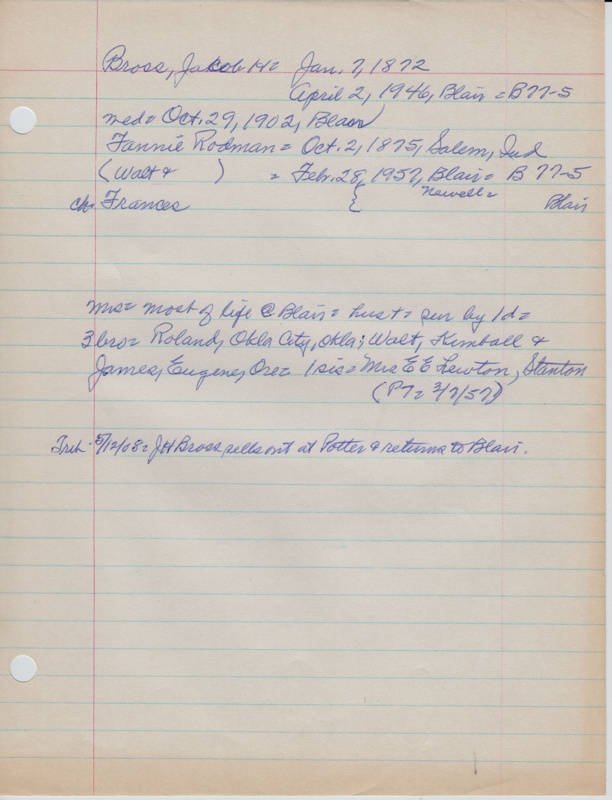 Bross, Jacob H= Jan. 7, 1872
April 2, 1946, Blair = B77-5
med= Oct. 29, 1902, Blair
Fannie Rodman = Oct. 2, 1875, Salem, Ind
(Walt & ) = Febr. 28, 1957, Blair= B 77-5
ch= Frances { Newell= Blair
Mrs= most of life @ Blair = hus + = sur by 1 d=
3 bro= Roland, Okla City, Okla; Walt, Kimball &
James, Eugene, Ore= 1 sis= Mrs E E Lewton, Stanton
(PT= 3/7/57)
Trib. 5/12/08= J H Bross sells out at Potter & returns to Blair.